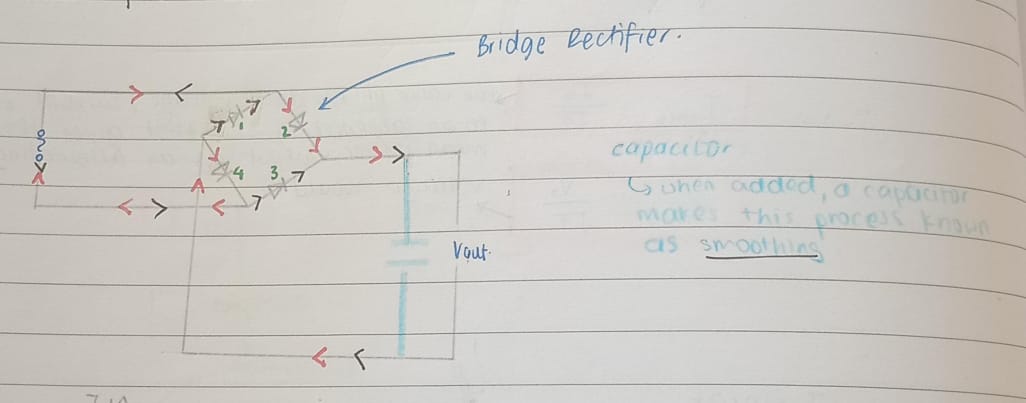 Bridge Rectifier.
1
2
4 3
capacitor
↳ when added, a capacitor
makes this process known
as smoothing
Vout.